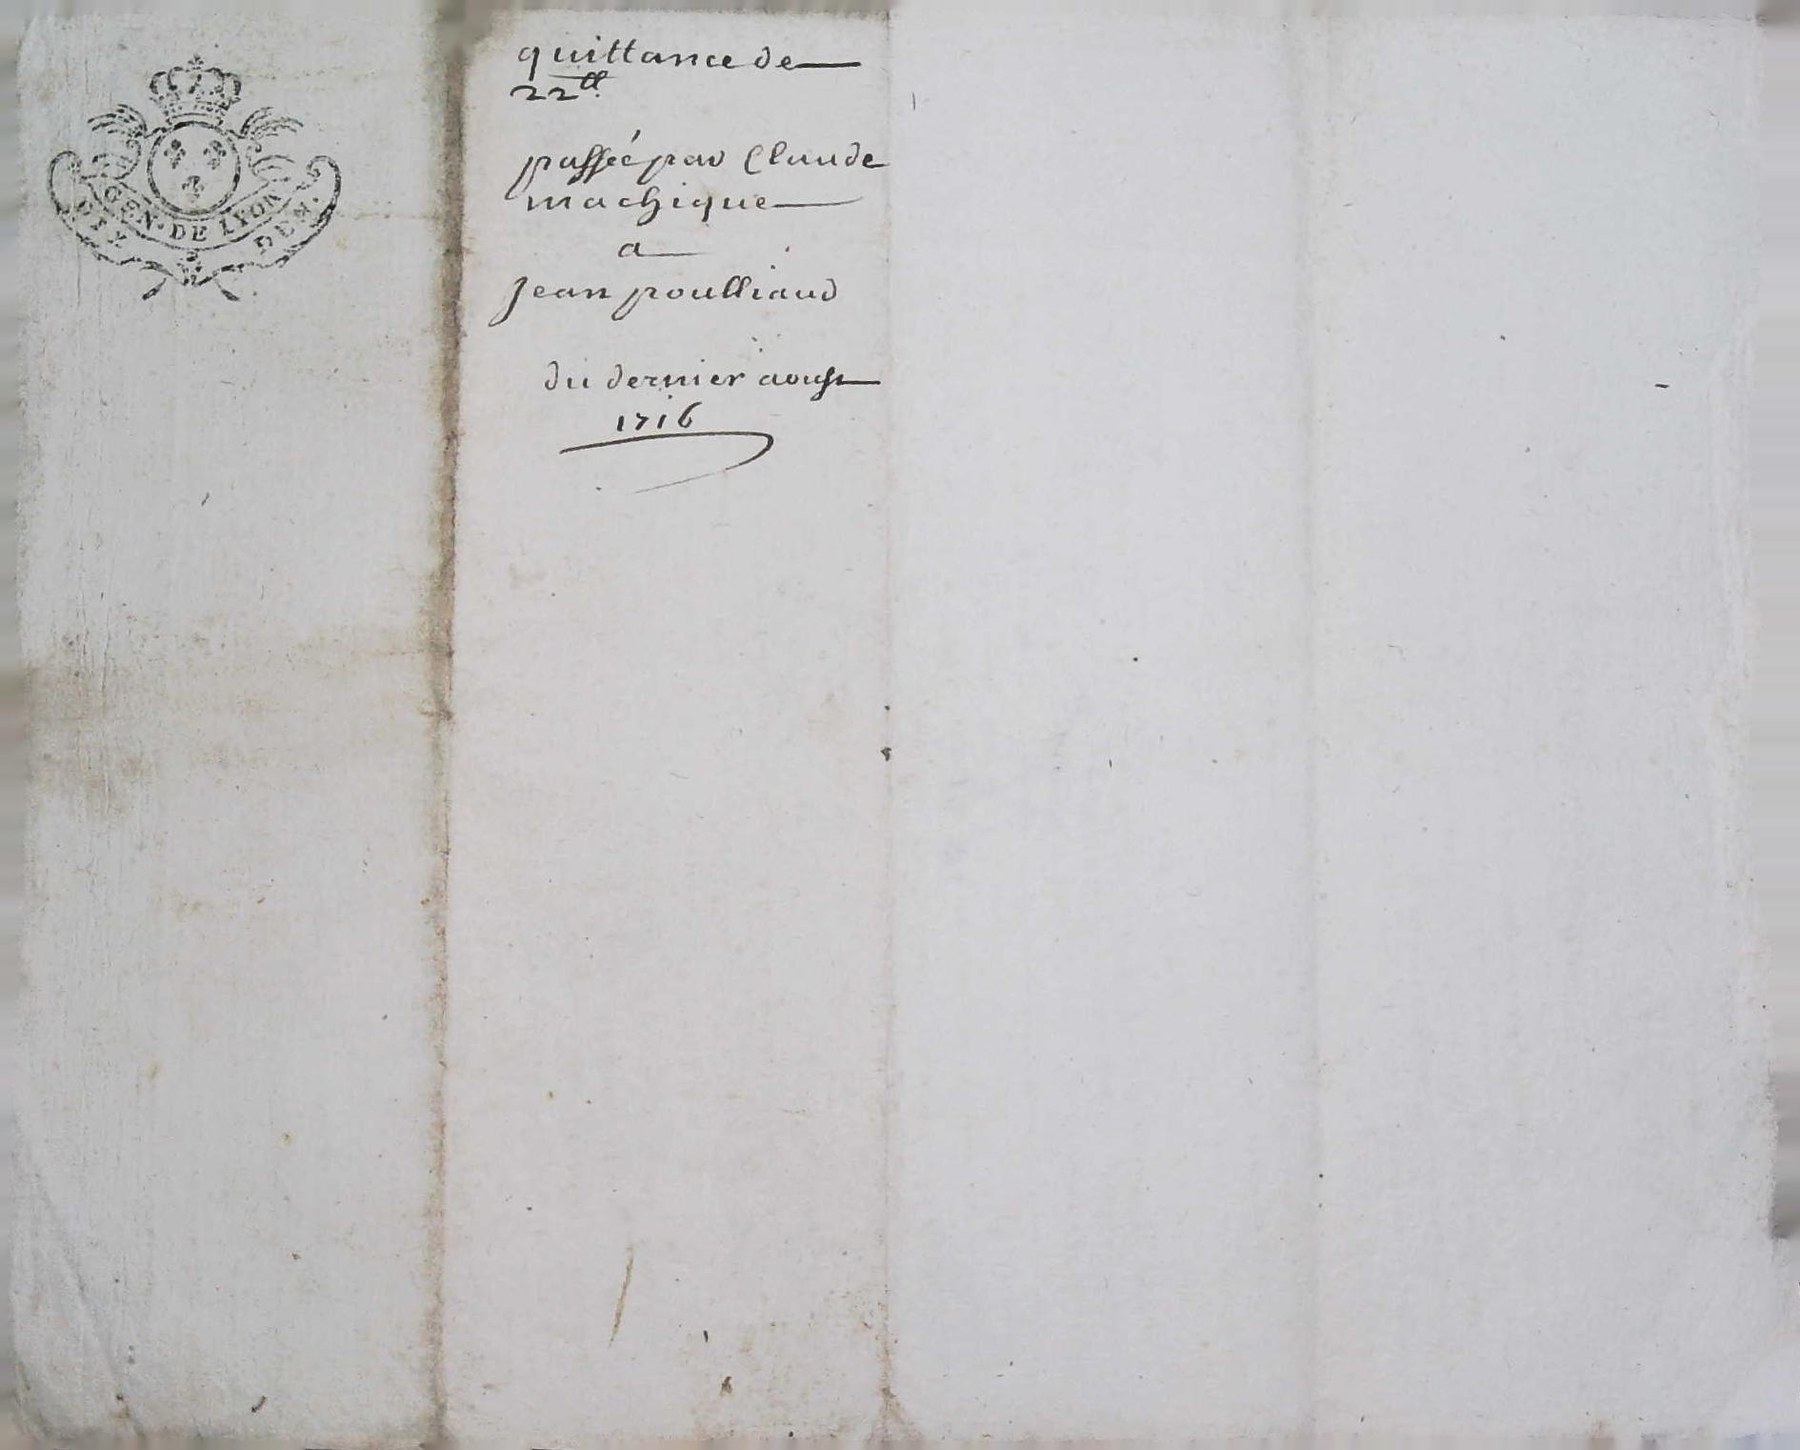 GEN. DE LYON
DIX DEN.
quittance de
22ll
passée par Claude
machique
a
Jean poulliaud
du dernier aoust
1716